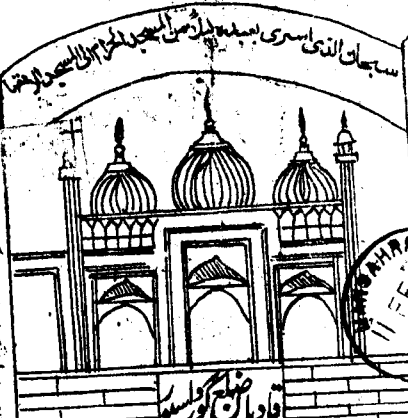 سبحان الذی اسری بعبدہ لیلاً من المسجد الحرام الی المسجد الاقصا
MANSAHRA
11 FE
قادیان ضلع گورداسپور